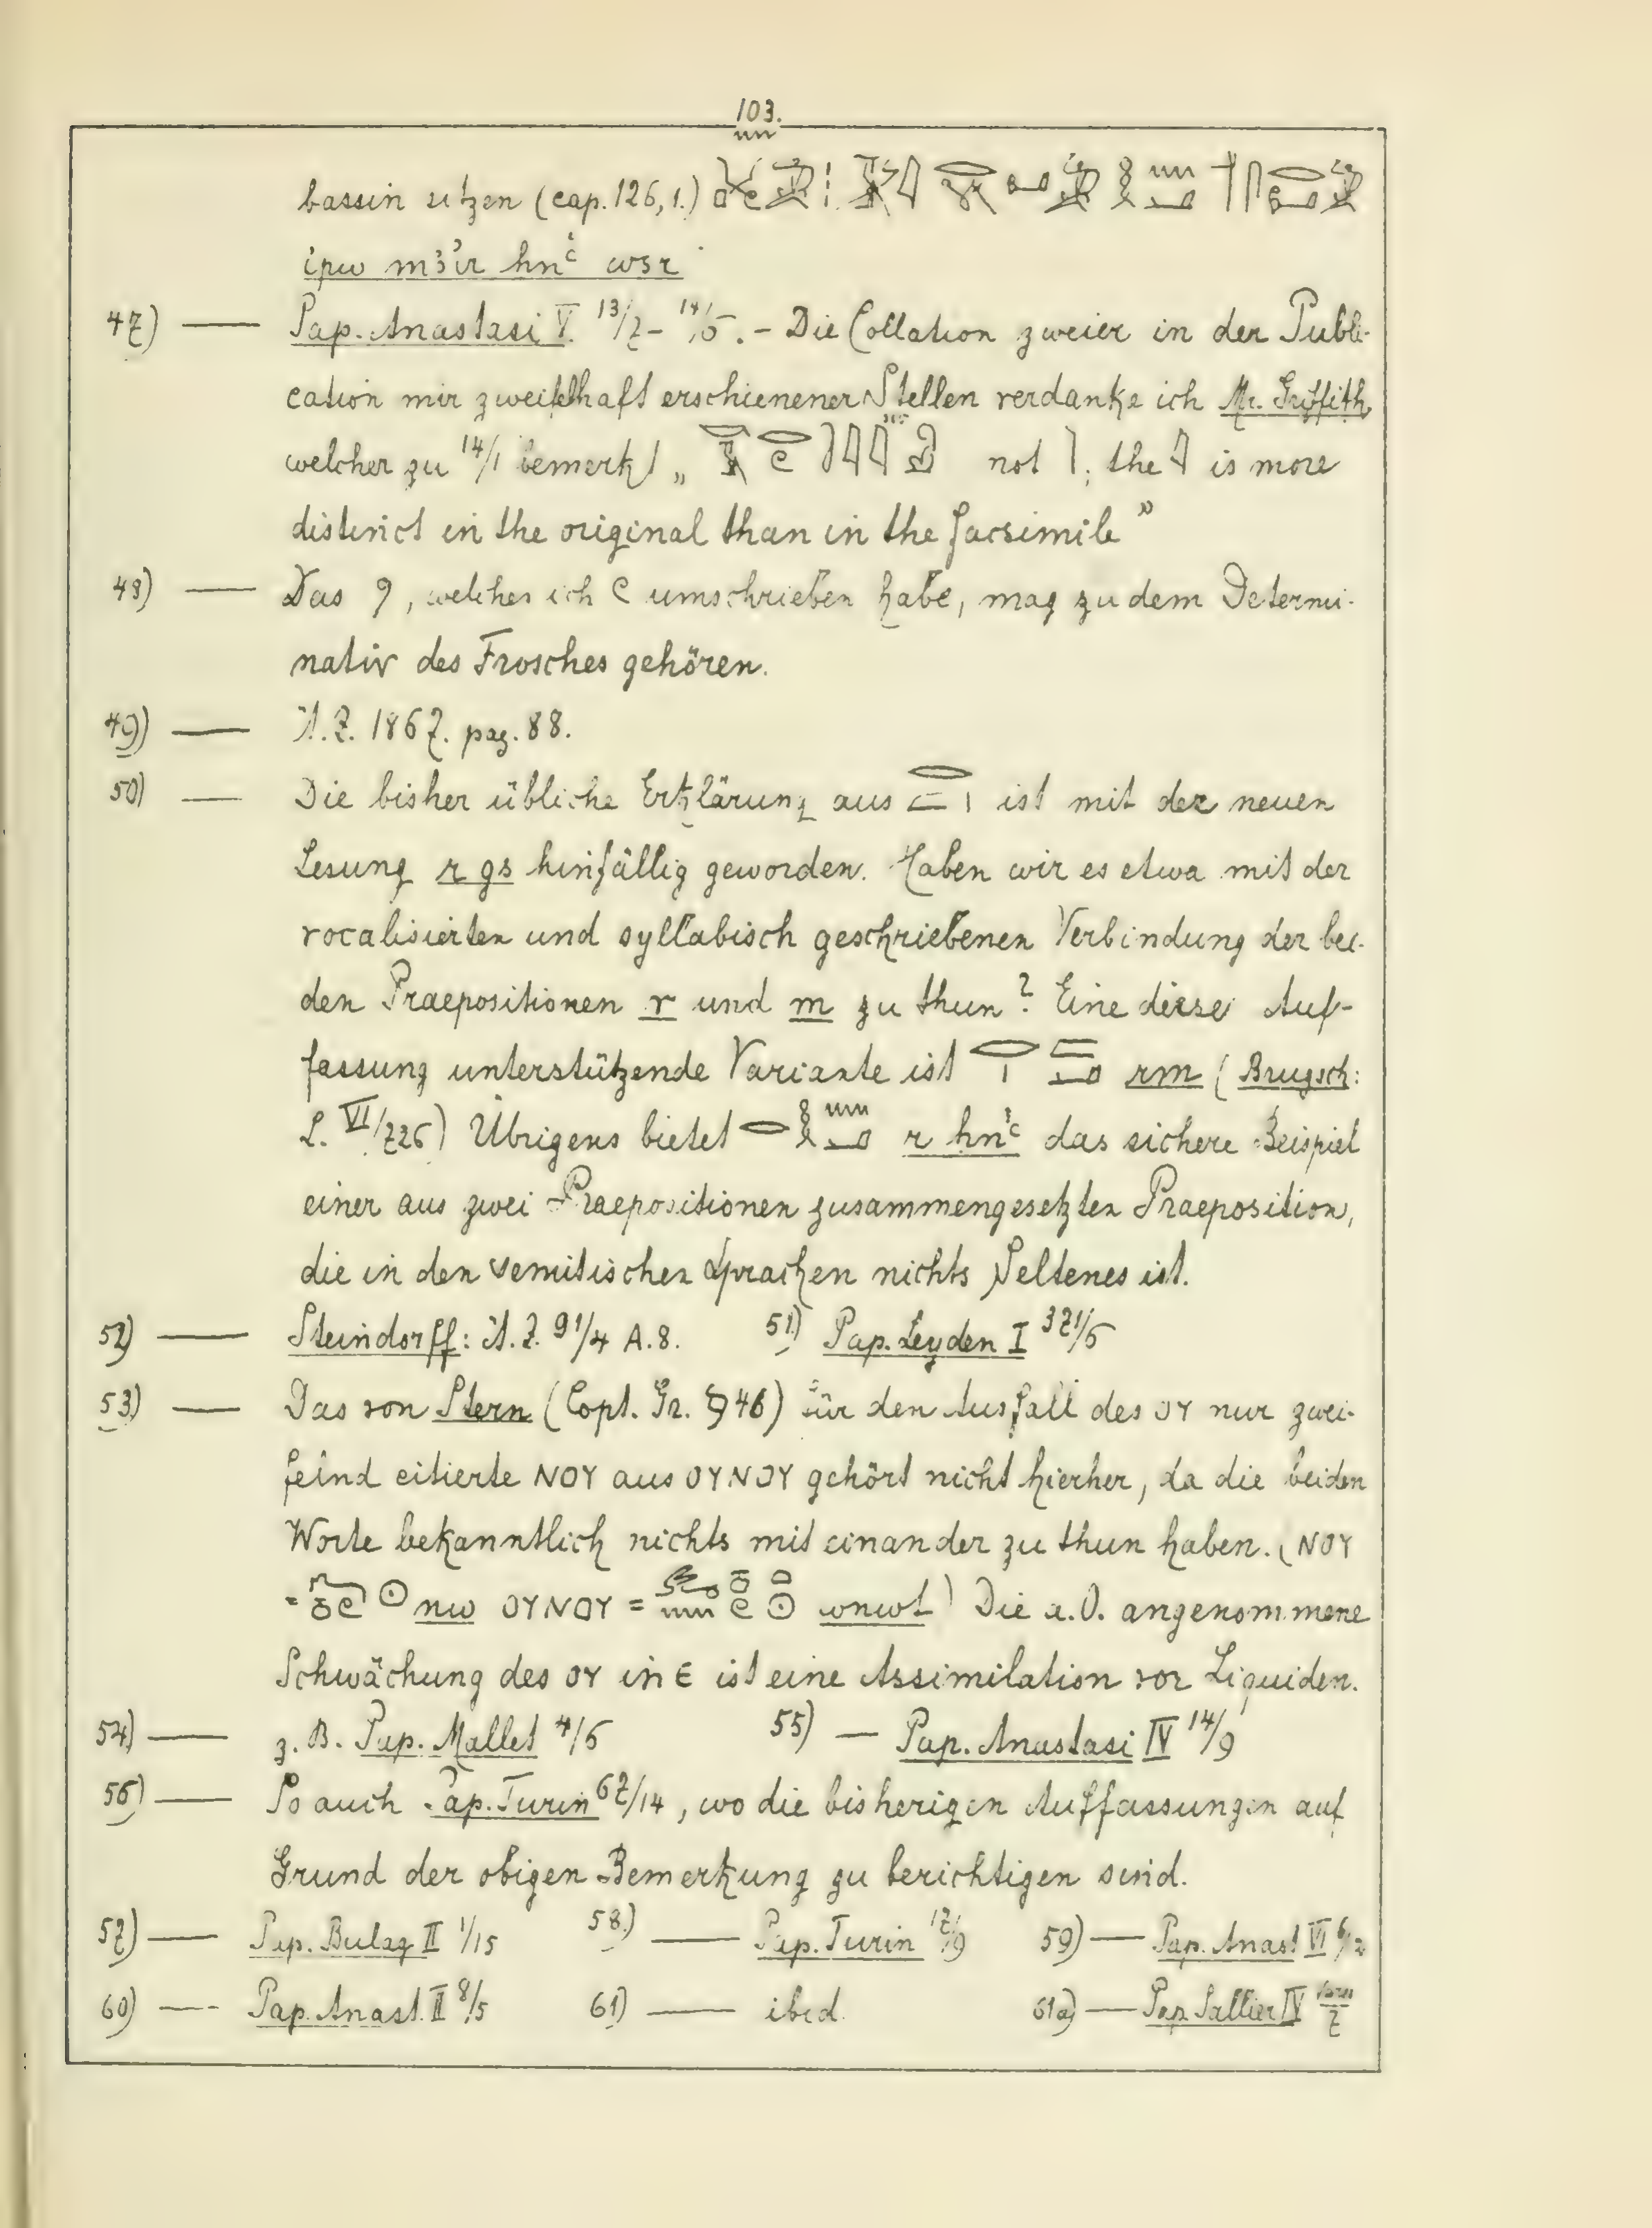 103.
bassin sitzen (cap. 126, 1.)
ipw m3ʾir hnʿ wsr
47) — Pap. Anastasi V. 13/7 – 14/5. – Die Collation zweier in der Publi-
cation mir zweifelhaft erschienener Stellen verdanke ich Mr. Griffith,
welcher zu 14/1 bemerkt „ not ; the 𓇋 is more
distinct in the original than in the facsimile”
48) — Das 9, welches ich e umschrieben habe, mag zu dem Determi-
nativ des Frosches gehören.
49) — Ä.Z. 1867. pag. 88.
50) — Die bisher übliche Erklärung aus ist mit der neuen
Lesung r gs hinfällig geworden. Haben wir es etwa mit der
vocalisierten und syllabisch geschriebenen Verbindung der bei-
den Praepositionen r und m zu thun? Eine diese Auf-
fassung unterstützende Variante ist rm (Brugsch:
L. VI/726) Übrigens bietet r hnʿ das sichere Beispiel
einer aus zwei Praepositionen zusammengesetzten Praeposition,
die in den semitischen Sprachen nichts Seltenes ist.
52) — Steindorff: Ä.Z. 91/4 A.8. 51) Pap. Leyden I 371/5
53) — Das von Stern (Copt. Gr. § 46) für den Ausfall des ⲟⲩ nur zwei-
felnd citierte ⲛⲟⲩ aus ⲟⲩⲛⲟⲩ gehört nicht hierher, da die beiden
Worte bekanntlich nichts mit einander zu thun haben. (ⲛⲟⲩ
= nw ⲟⲩⲛⲟⲩ = wnwt) Die a.O. angenommene
Schwächung des ⲟⲩ in ⲉ ist eine Assimilation vor Liquiden.
54) — z.B. Pap. Mallet 4/6 55) — Pap. Anastasi IV 14/9
56) — So auch Pap. Turin 67/14, wo die bisherigen Auffassungen auf
Grund der obigen Bemerkung zu berichtigen sind.
57) — Pap. Bulaq II 1/15 58.) — Pap. Turin 17/9 59) — Pap. Anast VI
60) — Pap. Anast. II 8/5 61) — ibid. 61a) — Pap. Sallier IV